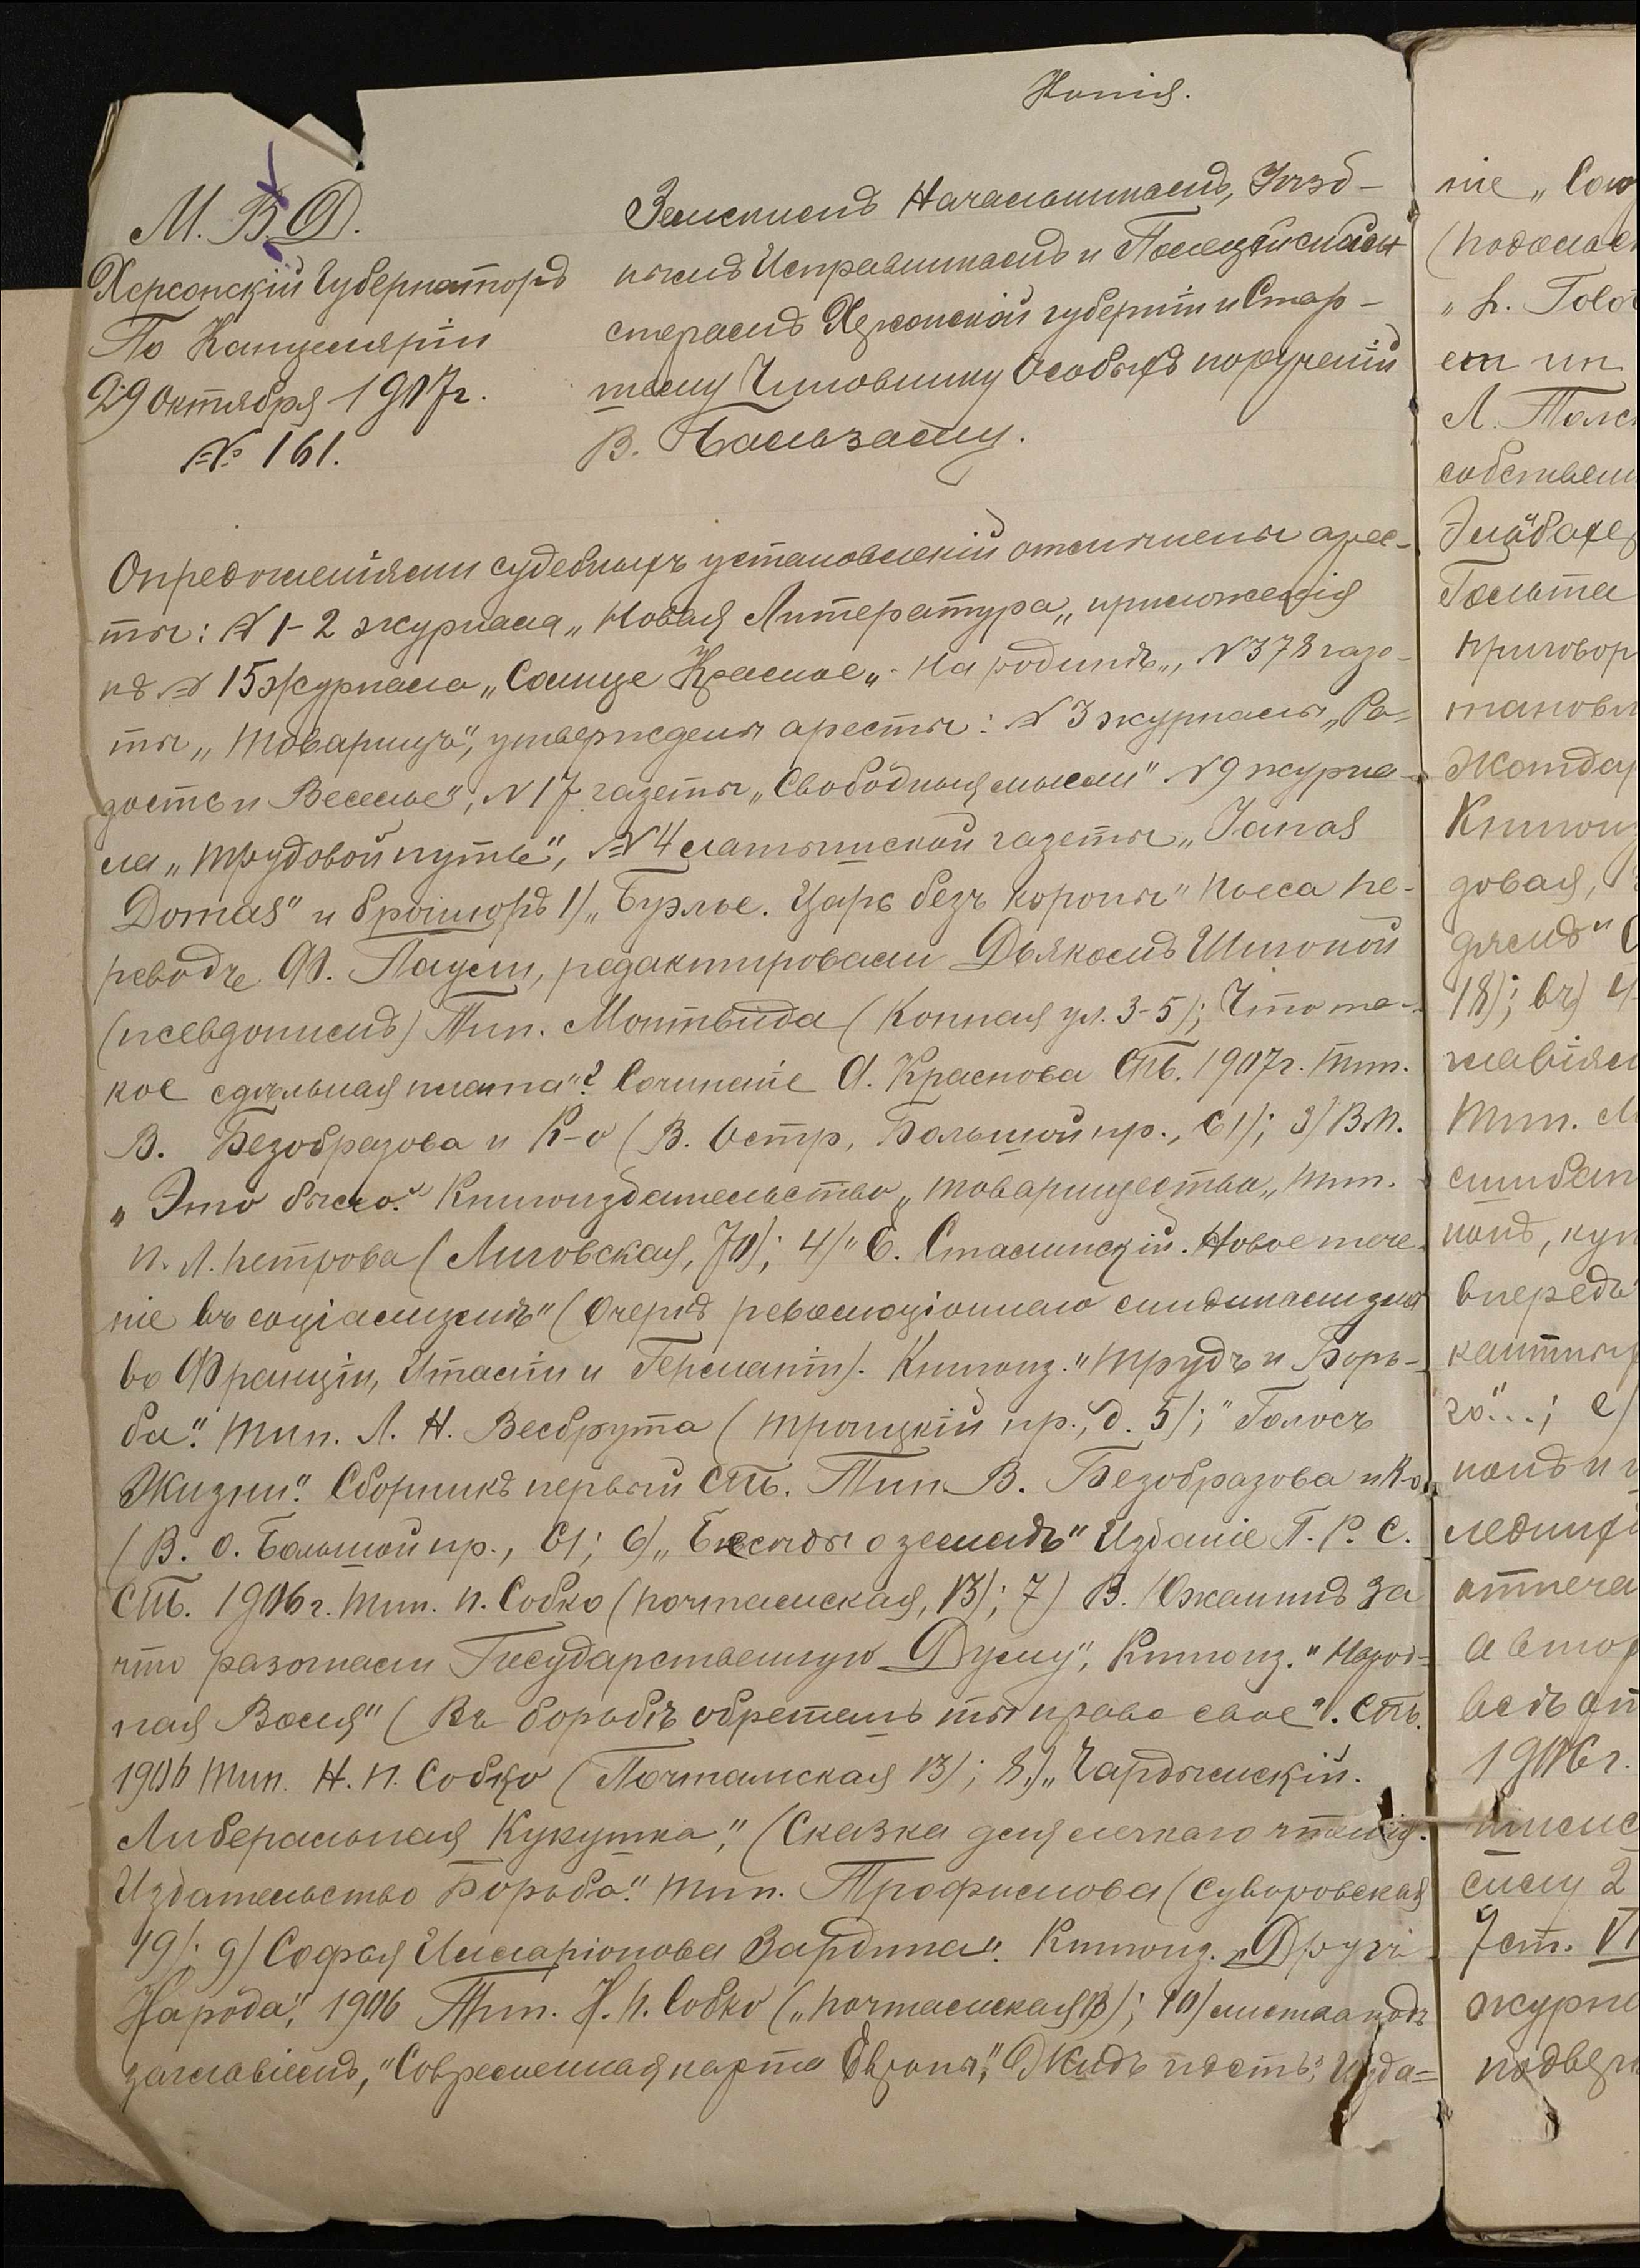 Копія.
М. В. Д.
Херсонскій Губернаторъ
По Канцеляріи
29 Октября 1907 г.
№ 161.
Земскимъ Начальникамъ, Уѣзд-
нымъ Исправникамъ и Полицеймей-
стерамъ Херсонской губерніи и Стар-
шему Чиновнику Особыхъ порученій
В. Бальзаму.
Опредѣленіями судебныхъ установленій отмѣнены арес-
ты: № 1-2 журнала „Новая Литература„ приложенія
къ № 15 журнала „Солнце Красное„ - На родинѣ„, № 378 газе-
ты „Товарищъ", утверждены аресты: № 3 журнала „Ра-
дость и Веселье", № 17 газеты „Свободныя мысли" № 9 журна-
ла „Трудовой путь", № 4 латышской газеты „Janas
Domas" и брошюръ 1) „Бурлье. Царь безъ короны" пьеса пе-
реводъ Ф. Паули, редактировали Дьякомъ Шпоной
(псевдонимъ) Тип. Монтвида (Конная ул. 3-5); Что та-
кое сдѣльная плата"? Сочиненіе А. Краснова Спб. 1907 г. Тип.
В. Безобразова и К-о (В. Остр, Большой пр., 61); 3) В.М.
„Это было." Книгоиздательство „Товарищества„ Тип.
П. Л. Петрова (Лиговская, 70); 4) "Е. Сталинскій. Новое тече-
ніе въ соціализмѣ" (Очеркъ революціоннаго синдикализма
во Франціи, Италіи и Германіи). Книгоизд. "Трудъ и Борь-
ба." Тип. Л. Н. Весбрута (Троицкій пр., д. 5); "Голосъ
Жизни." Сборникъ первый Спб. Тип. В. Безобразова и К-о
(В. О. Большой пр., 61; 6) „Бесѣды о землѣ" Изданіе П. Р. С.
Спб. 1906 г. Тип. Н. Собко (Почтамская, 13); 7) В. Южанинъ За
что разогнали Государственную Думу", Книгоизд. "Народ-
ная Воля" (Въ борьбѣ обретешь ты право свое". Спб.
1906 Тип. Н. П. Собко (Почтамская 13); 8.) „Чардымскій.
Либеральная Кукушка", (Сказка для легкаго чтенія.
Издательство Борьба." Тип. Трофимова (Суворовская
19); 9) Софья Илларіонова Бардина". Книгоизд. „Друзі
Народа", 1906 Тип. Н. П. Собко („Почтамская 13); 10) листка подъ
заглавіемъ, "Современная карта Европы", Изда=
ніе „Сою
Л. Толс
собствен
приговор
тановл
Жандар
Книгоиз
довая,
18); въ)
главіям
Тип. М
впередъ
го"...; е)
отпеча
автор
1906 г.
силу 2
7 ст. VI
журна
подверг